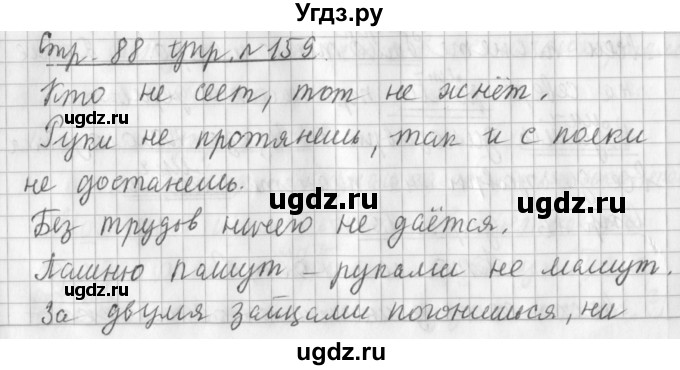 Угдз.ру
Стр. 88 упр. № 159.
Кто не сеет, тот не жнёт.
ugdz.ru ugdz.ru
Руки не протянешь, так и с полки
не достанешь.
ugdz.ru ugdz.ru
Без трудов ничего не даётся.
Пашню пашут – руками не машут.
ugdz.ru ugdz.ru
За двумя зайцами погонишься, ни
ugdz.ru